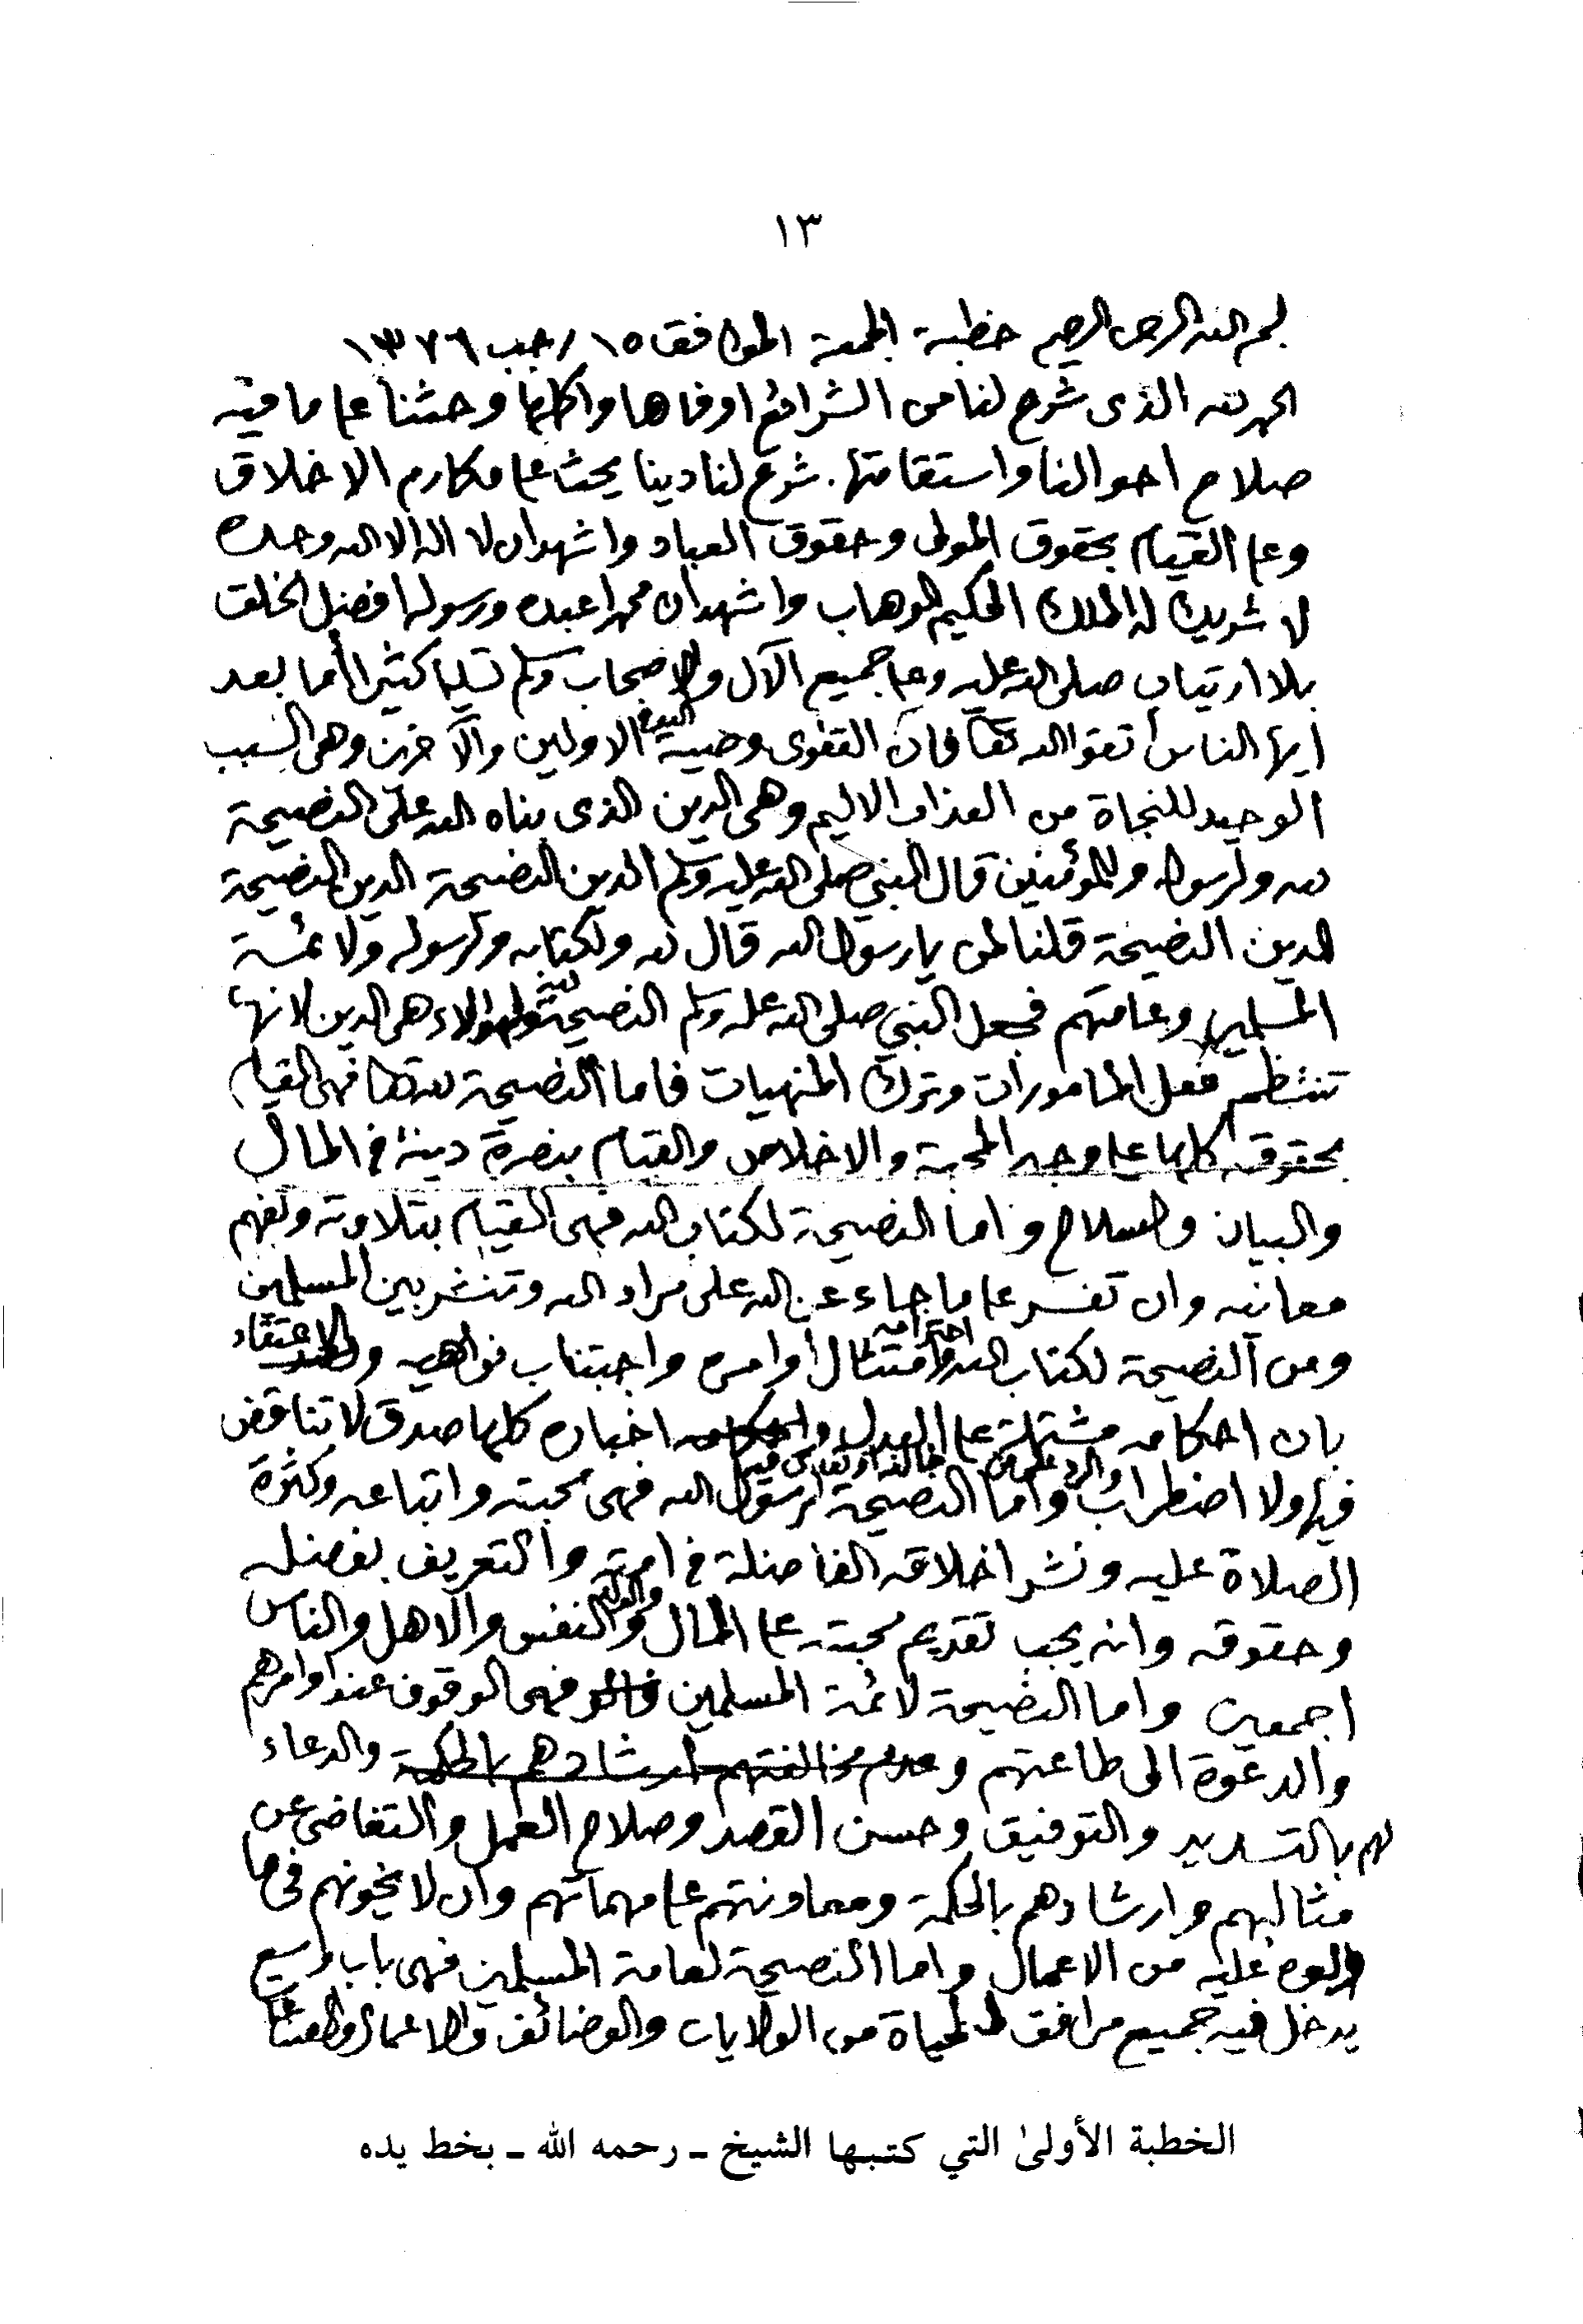 ١٣
بسم الله الرحمن الرحيم خطبة الجمعة الموافق ١٥ رجب ١٣٧٦
الحمد لله الذى شرع لنا من الشرائع اوفاها واكملها وحثنا على ما فيه
صلاح احوالنا واستقامتها. شرع لنا دينا يحث على مكارم الاخلاق
وعلى القيام بحقوق المولى وحقوق العباد واشهد ان لا اله الا الله وحده
لا شريك له الملك الحكيم الوهاب واشهد ان محمدا عبده ورسوله افضل الخلق
بلا ارتياب صلى الله عليه وعلى جميع الآل والاصحاب وسلم تسليما كثيرا أما بعد
ايها الناس اتقوا الله تعالى فان التقوى وصية الله فى الاولين والآخرين وهى السبب
الوحيد للنجاة من العذاب الاليم وهى الدين الذى بناه الله على النصيحة
لله ولرسوله وللمؤمنين قال النبي صلى الله عليه وسلم الدين النصيحة الدين النصيحة
الدين النصيحة قلنا لمن يا رسول الله قال لله ولكتابه ولرسوله ولائمة
المسلمين وعامتهم فجعل النبي صلى الله عليه وسلم النصيحة لهؤلاء هى الدين لانها
تنتظم فعل المامورات وترك المنهيات فاما النصيحة لله تعالى فهى القيام
بحقوقه كلها على وجه المحبة والاخلاص والقيام بنصرة دينه فى المال
والبيان والسلاح واما النصيحة لكتاب الله فهى القيام بتلاوته وتفهم
معانيه وان تفسر على ما جاء عن الله على مراد الله وتنشر بين المسلمين
ومن النصيحة لكتاب الله احترامه وامتثال أوامره واجتناب نواهيه والاعتقاد
بان احكامه مشتملة على العدل و اخباره كلها صدق لا تناقض
فيها ولا اضطراب والرد على من خالفه واما النصيحة لرسول الله فهى محبته واتباعه وكثرة
الصلاة عليه ونشر اخلاقه الفاضلة فى امته والتعريف بفضله
وحقوقه وانه يجب تقديم محبته على المال والولد والنفس والاهل والناس
اجمعين واما النصيحة لائمة المسلمين فهى الوقوف عند اوامرهم
والدعوة الى طاعتهم وعدم مخالفتهم ارشادهم بالحكمة والدعاء
لهم بالتسديد والتوفيق وحسن القصد وصلاح العمل والتغاضى عن
مثالبهم وارشادهم بالحكمة ومعاونتهم على مهماتهم وان لا يخونهم فى ما
ولوه عليه من الاعمال واما النصيحة لعامة المسلمين فهى باب وسيع
يدخل فيه جميع مرافق الحياة من الولايات والوضائف والاعمال
الخطبة الأولى التي كتبها الشيخ ـ رحمه الله ـ بخط يده